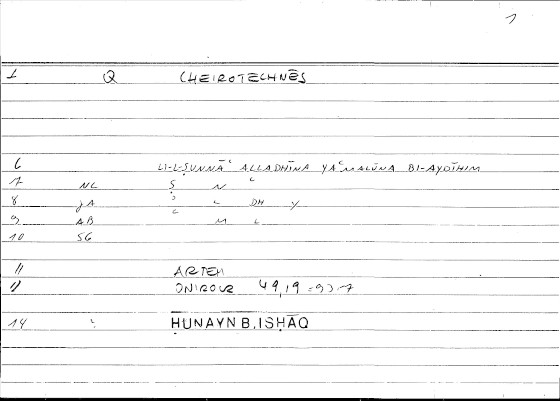 1
1 Q CHEIROTECHNĒS
6 LI-L-ṢUNNĀʿ ALLADHĪNA YAʿMALŪNA BI-AYDĪHIM
7 NL Ṣ N ʿ
8 JA ʾ L DH Y
9 AB ʿ M L
10 SG
11 ARTEM
11 ONIROCR 49,19 = 93,7
14 ḤUNAYN B. ISḤĀQ